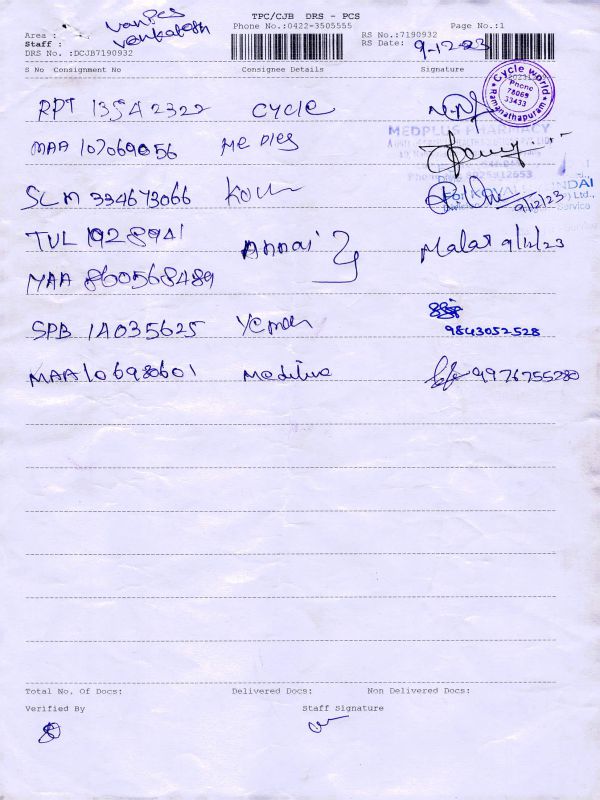 TPC/CJB DRS - PCS
Phone No.:0422-3505555
Page No.:1
Area : VanPCS
Staff : Venkatesh
RS No.:7190932
DRS No. :DCJB7190932
RS Date: 9-12-23
S No Consignment No Consignee Details Signature
RPT 13542322 CYCLE
Cycle World
Phone
78069
33433
Ramanathapuram
MAA 107069056 Me Dles
MEDPLUS PHARMACY
SLM 334673066
For KOVAI
9/12/23
TUL 1928941 Annai Malar 9/12/23
MAA 860568489
SPB 1A035625
9843052528
MAA 106980601 9976755280
Total No. Of Docs: Delivered Docs: Non Delivered Docs:
Verified By Staff Signature